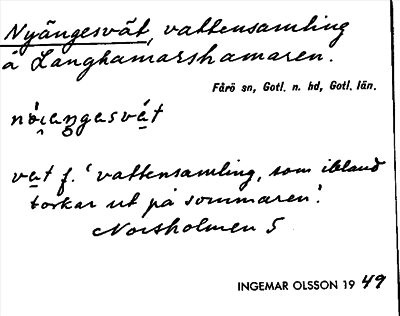 Nyängesvät, vattensamling
å Langhamarshamaren.
Fårö sn, Gotl. n. hd, Gotl. län.
vat f. 'vattensamling, som ibland
torkar ut på sommaren'.
Norsholmen 5
INGEMAR OLSSON 19 49